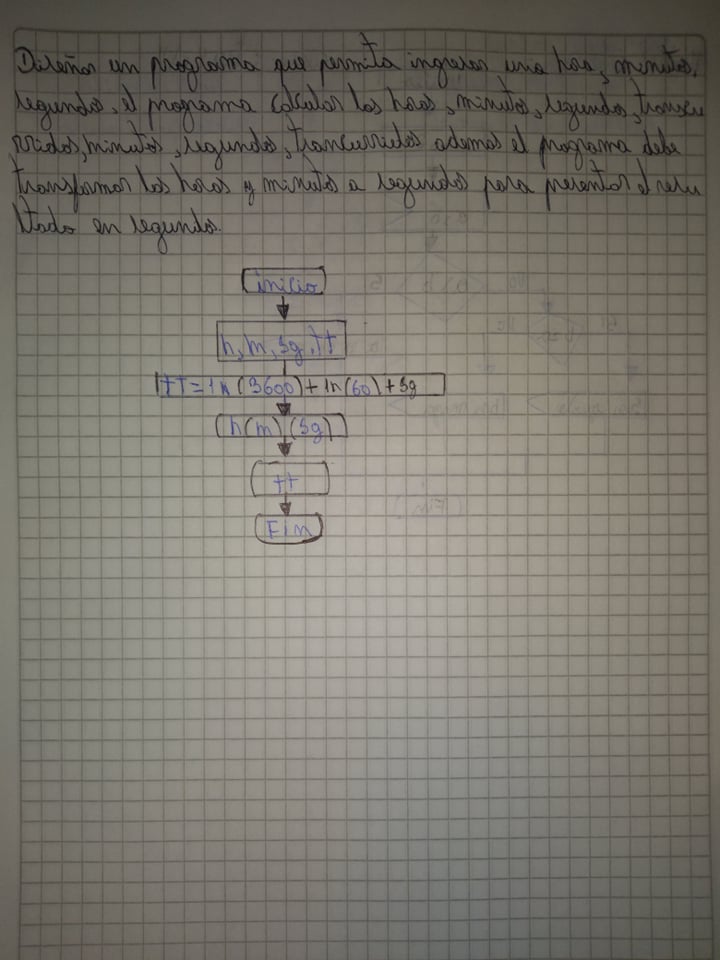 Diseñar un programa que permita ingresar una hora, minutos,
segundos, el programa calcular las horas, minutos, segundos, transcu
rridos, minutos, segundos, trancurridos ademas el programa debe
transformar las horas y minutos a segundos para presentar el resu
ltado en segundos.
inicio
h, m, sg, tt
tT = 1n (3600) + 1n (60) + sg
(h(m) (sg)
tt
Fin